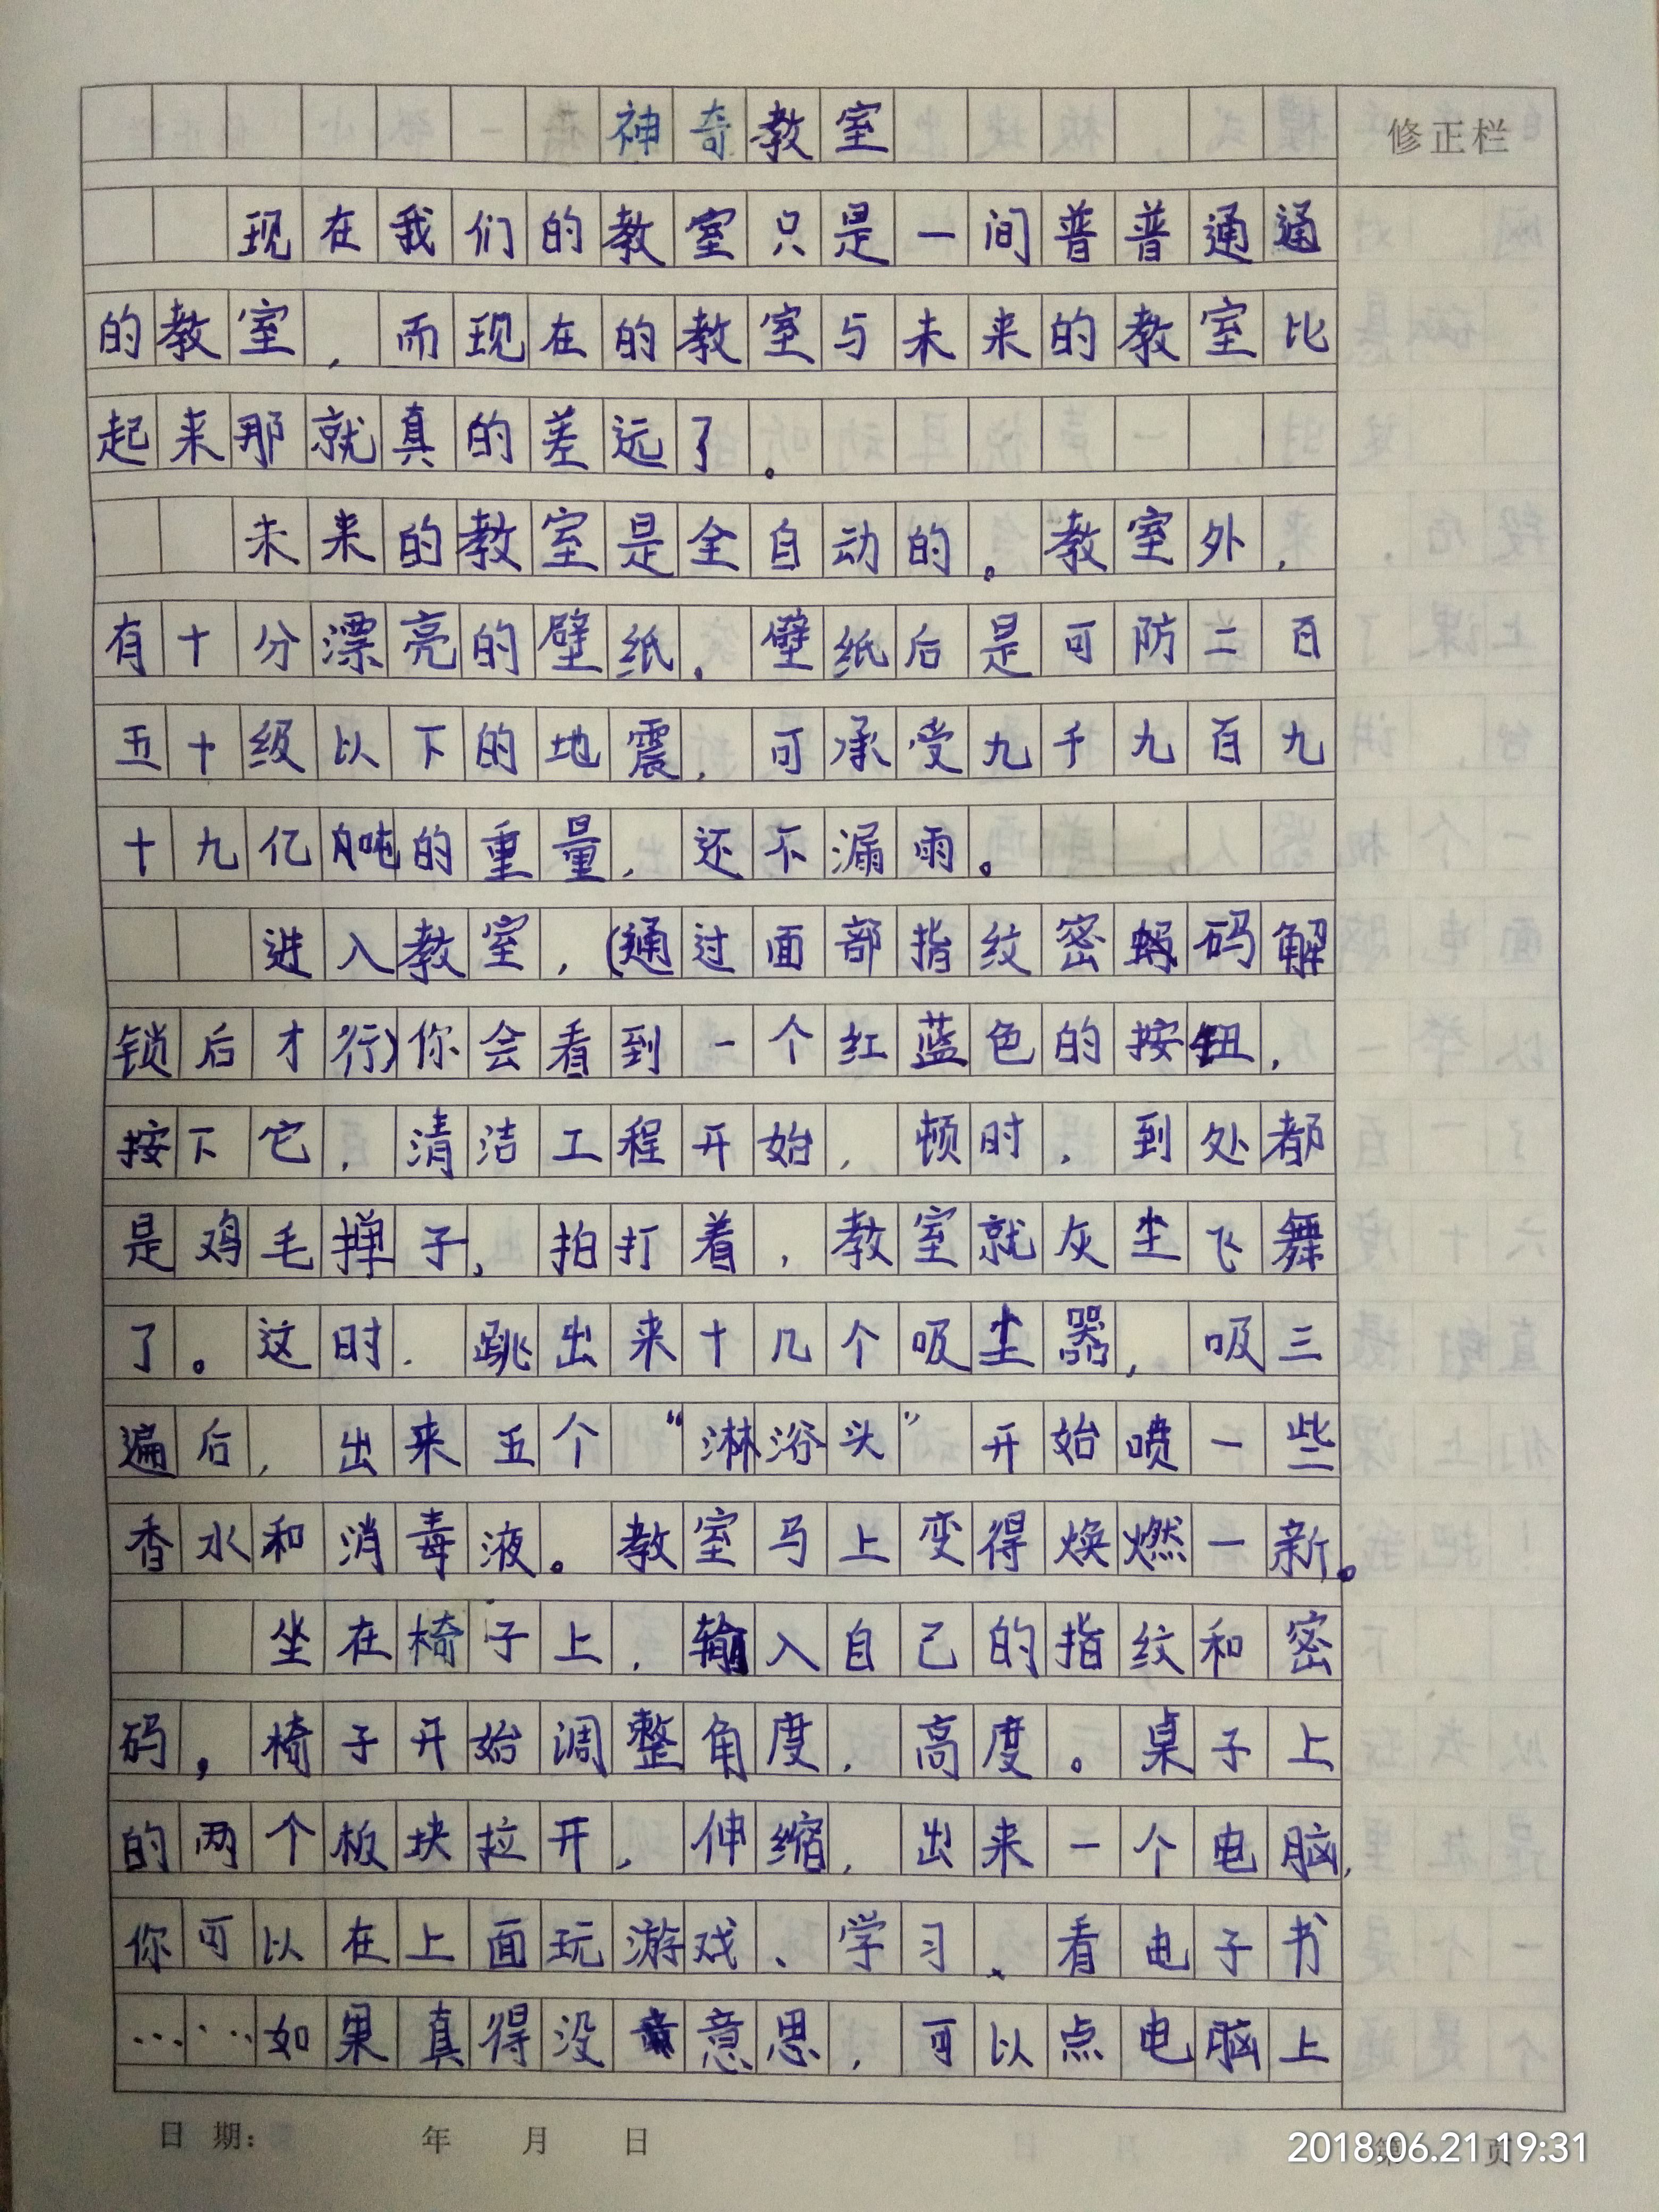 神奇教室
修正栏
现在我们的教室只是一间普普通通
的教室,而现在的教室与未来的教室比
起来那就真的差远了。
未来的教室是全自动的。教室外,
有十分漂亮的壁纸,壁纸后是可防二百
五十级以下的地震,可承受九千九百九
十九亿吨的重量,还不漏雨。
进入教室,(通过面部指纹密码解
锁后才行)你会看到一个红蓝色的按钮,
按下它,清洁工程开始,顿时,到处都
是鸡毛掸子,拍打着,教室就灰尘飞舞
了。这时,跳出来十几个吸尘器,吸三
遍后,出来五个“淋浴头”开始喷一些
香水和消毒液。教室马上变得焕燃一新。
坐在椅子上,输入自己的指纹和密
码,椅子开始调整角度,高度。桌子上
的两个板块拉开,伸缩,出来一个电脑,
你可以在上面玩游戏、学习、看电子书
……如果真得没意思,可以点电脑上
日 期: 年 月 日
第 页
2018.06.21 19:31